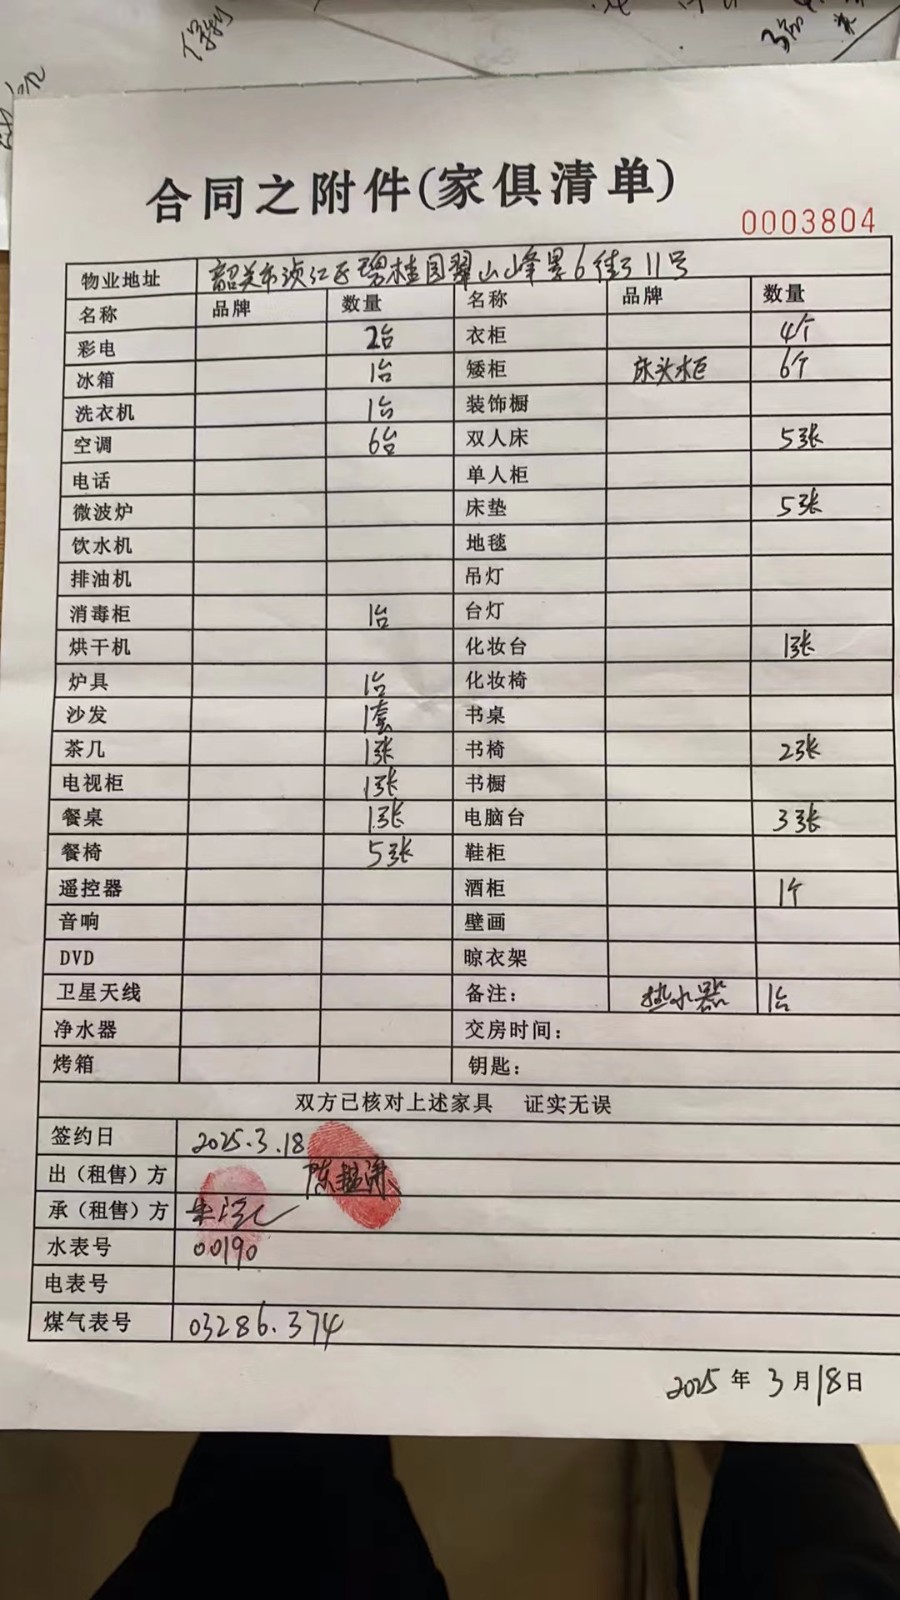 合同之附件(家俱清单)
0003804
物业地址 韶关市浈江区碧桂园翠山峰景6街11号
名称 品牌 数量 名称 品牌 数量
彩电 2台 衣柜 4个
冰箱 1台 矮柜 床头柜 6个
洗衣机 1台 装饰橱
空调 6台 双人床 5张
电话 单人柜
微波炉 床垫 5张
饮水机 地毯
排油机 吊灯
消毒柜 1台 台灯
烘干机 化妆台 1张
炉具 1台 化妆椅
沙发 1套 书桌
茶几 1张 书椅 2张
电视柜 1张 书橱
餐桌 1张 电脑台 3张
餐椅 5张 鞋柜
遥控器 酒柜 1个
音响 壁画
DVD 晾衣架
卫星天线 备注： 热水器 1台
净水器 交房时间：
烤箱 钥匙：
双方已核对上述家具 证实无误
签约日 2025.3.18
出（租售）方
承（租售）方
水表号 00190
电表号
煤气表号 03286.374
2025年3月18日